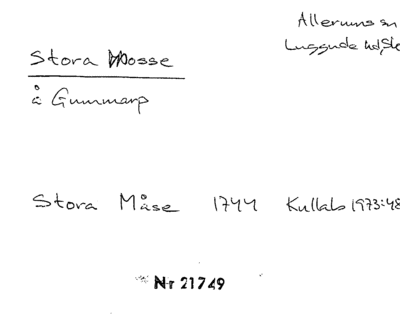 Allerums sn
Luggude hd, Sk
Stora Mosse
å Gummarp
Stora Måse 1744 Kullab 1973:48
Nr 21749